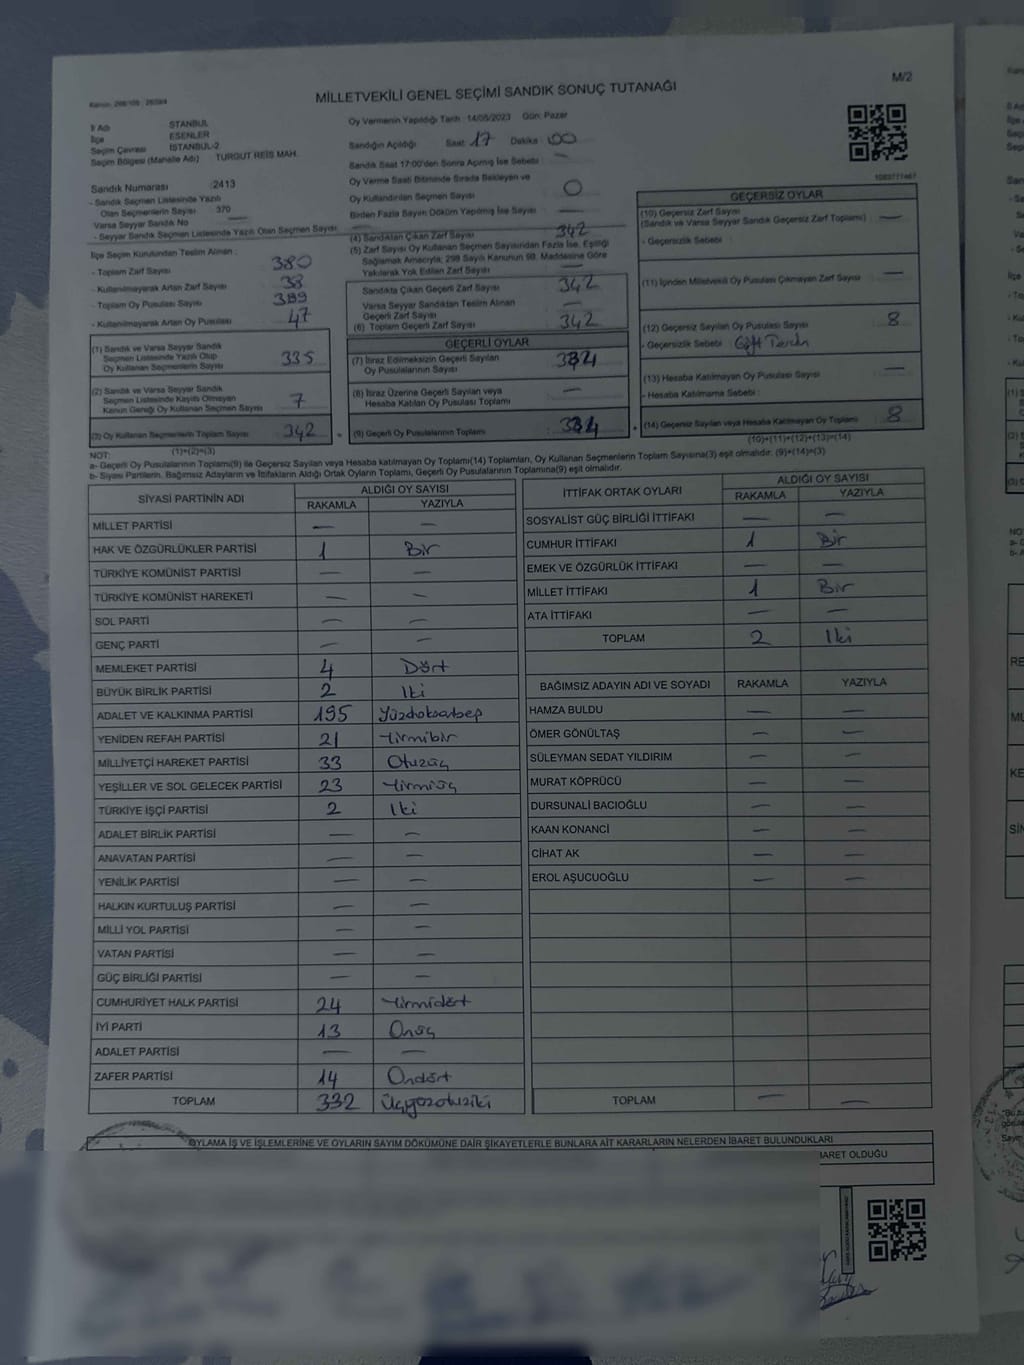 M/2
MİLLETVEKİLİ GENEL SEÇİMİ SANDIK SONUÇ TUTANAĞI
İl Adı İSTANBUL
İlçe ESENLER
Seçim Çevresi İSTANBUL-2
Seçim Bölgesi (Mahalle Adı) TURGUT REİS MAH.
Sandık Numarası :2413
- Sandık Seçmen Listesinde Yazılı
Olan Seçmenlerin Sayısı 370
Varsa Seyyar Sandık No —
- Seyyar Sandık Seçmen Listesinde Yazılı Olan Seçmen Sayısı
İlçe Seçim Kurulundan Teslim Alınan :
- Toplam Zarf Sayısı 380
- Kullanılmayarak Artan Zarf Sayısı 38
- Toplam Oy Pusulası Sayısı 389
- Kullanılmayarak Artan Oy Pusulası 47
(1) Sandık ve Varsa Seyyar Sandık
Seçmen Listesinde Yazılı Olup
Oy Kullanan Seçmenlerin Sayısı 335
(2) Sandık ve Varsa Seyyar Sandık
Seçmen Listesinde Kayıtlı Olmayan
Kanun Gereği Oy Kullanan Seçmen Sayısı 7
(3) Oy Kullanan Seçmenlerin Toplam Sayısı 342
(1)+(2)=(3)
Oy Vermenin Yapıldığı Tarih : 14/05/2023 Gün: Pazar
Sandığın Açıldığı Saat 17 Dakika 00
Sandık Saat 17:00'den Sonra Açılmış İse Sebebi : —
Oy Verme Saati Bitiminde Sırada Bekleyen ve
Oy Kullandırılan Seçmen Sayısı 0
Birden Fazla Sayım Döküm Yapılmış İse Sayısı —
(4) Sandıktan Çıkan Zarf Sayısı 342
(5) Zarf Sayısı Oy Kullanan Seçmen Sayısından Fazla İse, Eşitliği
Sağlamak Amacıyla; 298 Sayılı Kanunun 98. Maddesine Göre
Yakılarak Yok Edilen Zarf Sayısı —
Sandıkta Çıkan Geçerli Zarf Sayısı 342
Varsa Seyyar Sandıktan Teslim Alınan
Geçerli Zarf Sayısı —
(6) Toplam Geçerli Zarf Sayısı 342
GEÇERLİ OYLAR
(7) İtiraz Edilmeksizin Geçerli Sayılan
Oy Pusulalarının Sayısı 334
(8) İtiraz Üzerine Geçerli Sayılan veya
Hesaba Katılan Oy Pusulası Toplamı —
(9) Geçerli Oy Pusulalarının Toplamı 334
GEÇERSİZ OYLAR
(10) Geçersiz Zarf Sayısı
(Sandık ve Varsa Seyyar Sandık Geçersiz Zarf Toplamı) —
- Geçersizlik Sebebi :
(11) İçinden Milletvekili Oy Pusulası Çıkmayan Zarf Sayısı —
(12) Geçersiz Sayılan Oy Pusulası Sayısı 8
- Geçersizlik Sebebi : Çift Tercih
(13) Hesaba Katılmayan Oy Pusulası Sayısı —
- Hesaba Katılmama Sebebi :
(14) Geçersiz Sayılan veya Hesaba Katılmayan Oy Toplamı 8
(10)+(11)+(12)+(13)=(14)
NOT:
a- Geçerli Oy Pusulalarının Toplamı(9) ile Geçersiz Sayılan veya Hesaba katılmayan Oy Toplamı(14) Toplamları, Oy Kullanan Seçmenlerin Toplam Sayısına(3) eşit olmalıdır. (9)+(14)=(3)
b- Siyasi Partilerin, Bağımsız Adayların ve İttifakların Aldığı Ortak Oyların Toplamı, Geçerli Oy Pusulalarının Toplamına(9) eşit olmalıdır.
SİYASİ PARTİNİN ADI ALDIĞI OY SAYISI
RAKAMLA YAZIYLA
MİLLET PARTİSİ — —
HAK VE ÖZGÜRLÜKLER PARTİSİ 1 Bir
TÜRKİYE KOMÜNİST PARTİSİ — —
TÜRKİYE KOMÜNİST HAREKETİ — —
SOL PARTİ — —
GENÇ PARTİ — —
MEMLEKET PARTİSİ 4 Dört
BÜYÜK BİRLİK PARTİSİ 2 İki
ADALET VE KALKINMA PARTİSİ 195 Yüzdoksanbeş
YENİDEN REFAH PARTİSİ 21 Yirmibir
MİLLİYETÇİ HAREKET PARTİSİ 33 Otuzüç
YEŞİLLER VE SOL GELECEK PARTİSİ 23 Yirmiüç
TÜRKİYE İŞÇİ PARTİSİ 2 İki
ADALET BİRLİK PARTİSİ — —
ANAVATAN PARTİSİ — —
YENİLİK PARTİSİ — —
HALKIN KURTULUŞ PARTİSİ — —
MİLLİ YOL PARTİSİ — —
VATAN PARTİSİ — —
GÜÇ BİRLİĞİ PARTİSİ — —
CUMHURİYET HALK PARTİSİ 24 Yirmidört
İYİ PARTİ 13 Onüç
ADALET PARTİSİ — —
ZAFER PARTİSİ 14 Ondört
TOPLAM 332 Üçyüzotuziki
İTTİFAK ORTAK OYLARI ALDIĞI OY SAYISI
RAKAMLA YAZIYLA
SOSYALİST GÜÇ BİRLİĞİ İTTİFAKI — —
CUMHUR İTTİFAKI 1 Bir
EMEK VE ÖZGÜRLÜK İTTİFAKI — —
MİLLET İTTİFAKI 1 Bir
ATA İTTİFAKI — —
TOPLAM 2 İki
BAĞIMSIZ ADAYIN ADI VE SOYADI RAKAMLA YAZIYLA
HAMZA BULDU — —
ÖMER GÖNÜLTAŞ — —
SÜLEYMAN SEDAT YILDIRIM — —
MURAT KÖPRÜCÜ — —
DURSUNALİ BACIOĞLU — —
KAAN KONANCİ — —
CİHAT AK — —
EROL AŞUCUOĞLU — —
TOPLAM — —
OYLAMA İŞ VE İŞLEMLERİNE VE OYLARIN SAYIM DÖKÜMÜNE DAİR ŞİKAYETLERLE BUNLARA AİT KARARLARIN NELERDEN İBARET BULUNDUKLARI
İBARET OLDUĞU